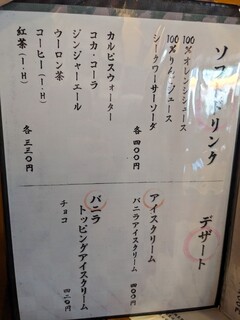 ソフトドリンク
100%オレンジジュース
100%りんごジュース
シークワーサーソーダ
各四〇〇円
カルピスウォーター
コカ・コーラ
ジンジャーエール
ウーロン茶
コーヒー(I・H)
紅茶(I・H)
各三三〇円
デザート
アイスクリーム
バニラアイスクリーム
四〇〇円
バニラ
トッピングアイスクリーム
チョコ
四二〇円